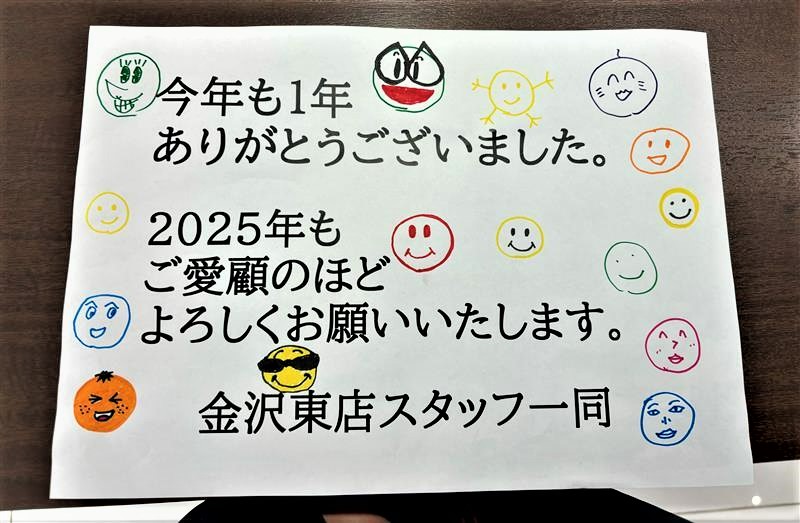 今年も1年
ありがとうございました。
2025年も
ご愛顧のほど
よろしくお願いいたします。
金沢東店スタッフ一同